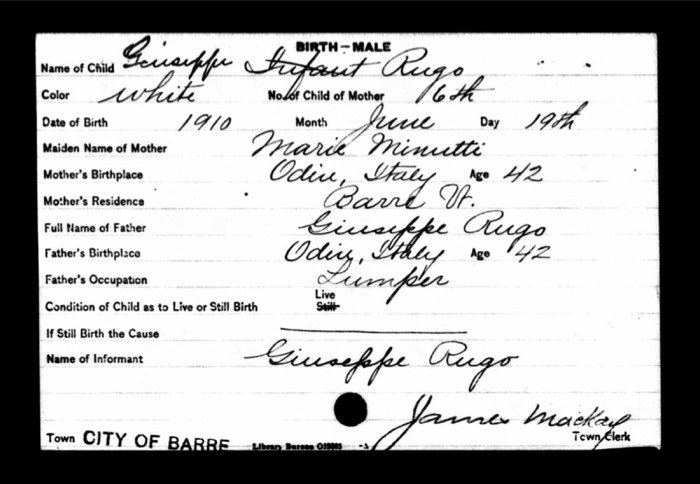 BIRTH – MALE
Name of Child Giuseppe Infant Rugo
Color White No. of Child of Mother 6th
Date of Birth 1910 Month June Day 19th
Maiden Name of Mother Marie Minutti
Mother's Birthplace Odin, Italy Age 42
Mother's Residence Barre Vt.
Full Name of Father Giuseppe Rugo
Father's Birthplace Odin, Italy Age 42
Father's Occupation Lumper
Live
Condition of Child as to Live or Still Birth Still
If Still Birth the Cause
Name of Informant Giuseppe Rugo
James Mackay
Town CITY OF BARRE Library Bureau Town Clerk